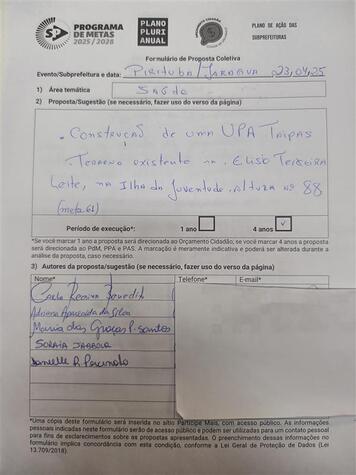 PROGRAMA
DE METAS
2025/2028
PLANO
PLURI
ANUAL
PLANO DE AÇÃO DAS
SUBPREFEITURAS
Formulário de Proposta Coletiva
Evento/Subprefeitura e data: Pirituba/Jaraguá 23/04/25
1) Área temática Saúde
2) Proposta/Sugestão (se necessário, fazer uso do verso da página)
. Construção de uma UPA Taipas
Terreno existente na . Elisio Teixeira
Leite, na Ilha da Juventude, altura nº 88
(meta 61)
Período de execução*: 1 ano 4 anos ✓
*Se você marcar 1 ano a proposta será direcionada ao Orçamento Cidadão; se você marcar 4 anos a proposta
será direcionada ao PdM, PPA e PAS. A marcação é meramente indicativa e poderá ser alterada durante a
análise da proposta, caso necessário.
3) Autores da proposta/sugestão (se necessário, fazer uso do verso da página)
Nome* Telefone* E-mail*
Carla Regina
Adriana Aparecida da Silva
Maria das Graças P. Santos
SORAIA
Danielle R.
*Uma cópia deste formulário será inserida no sítio Participe Mais, com acesso público. As informações
pessoais indicadas neste formulário serão de acesso público e podem ser utilizadas para um contato pessoal
para fins de esclarecimentos sobre as propostas apresentadas. O preenchimento dessas informações no
formulário implica concordância com esta condição, conforme a Lei Geral de Proteção de Dados (Lei
13.709/2018).